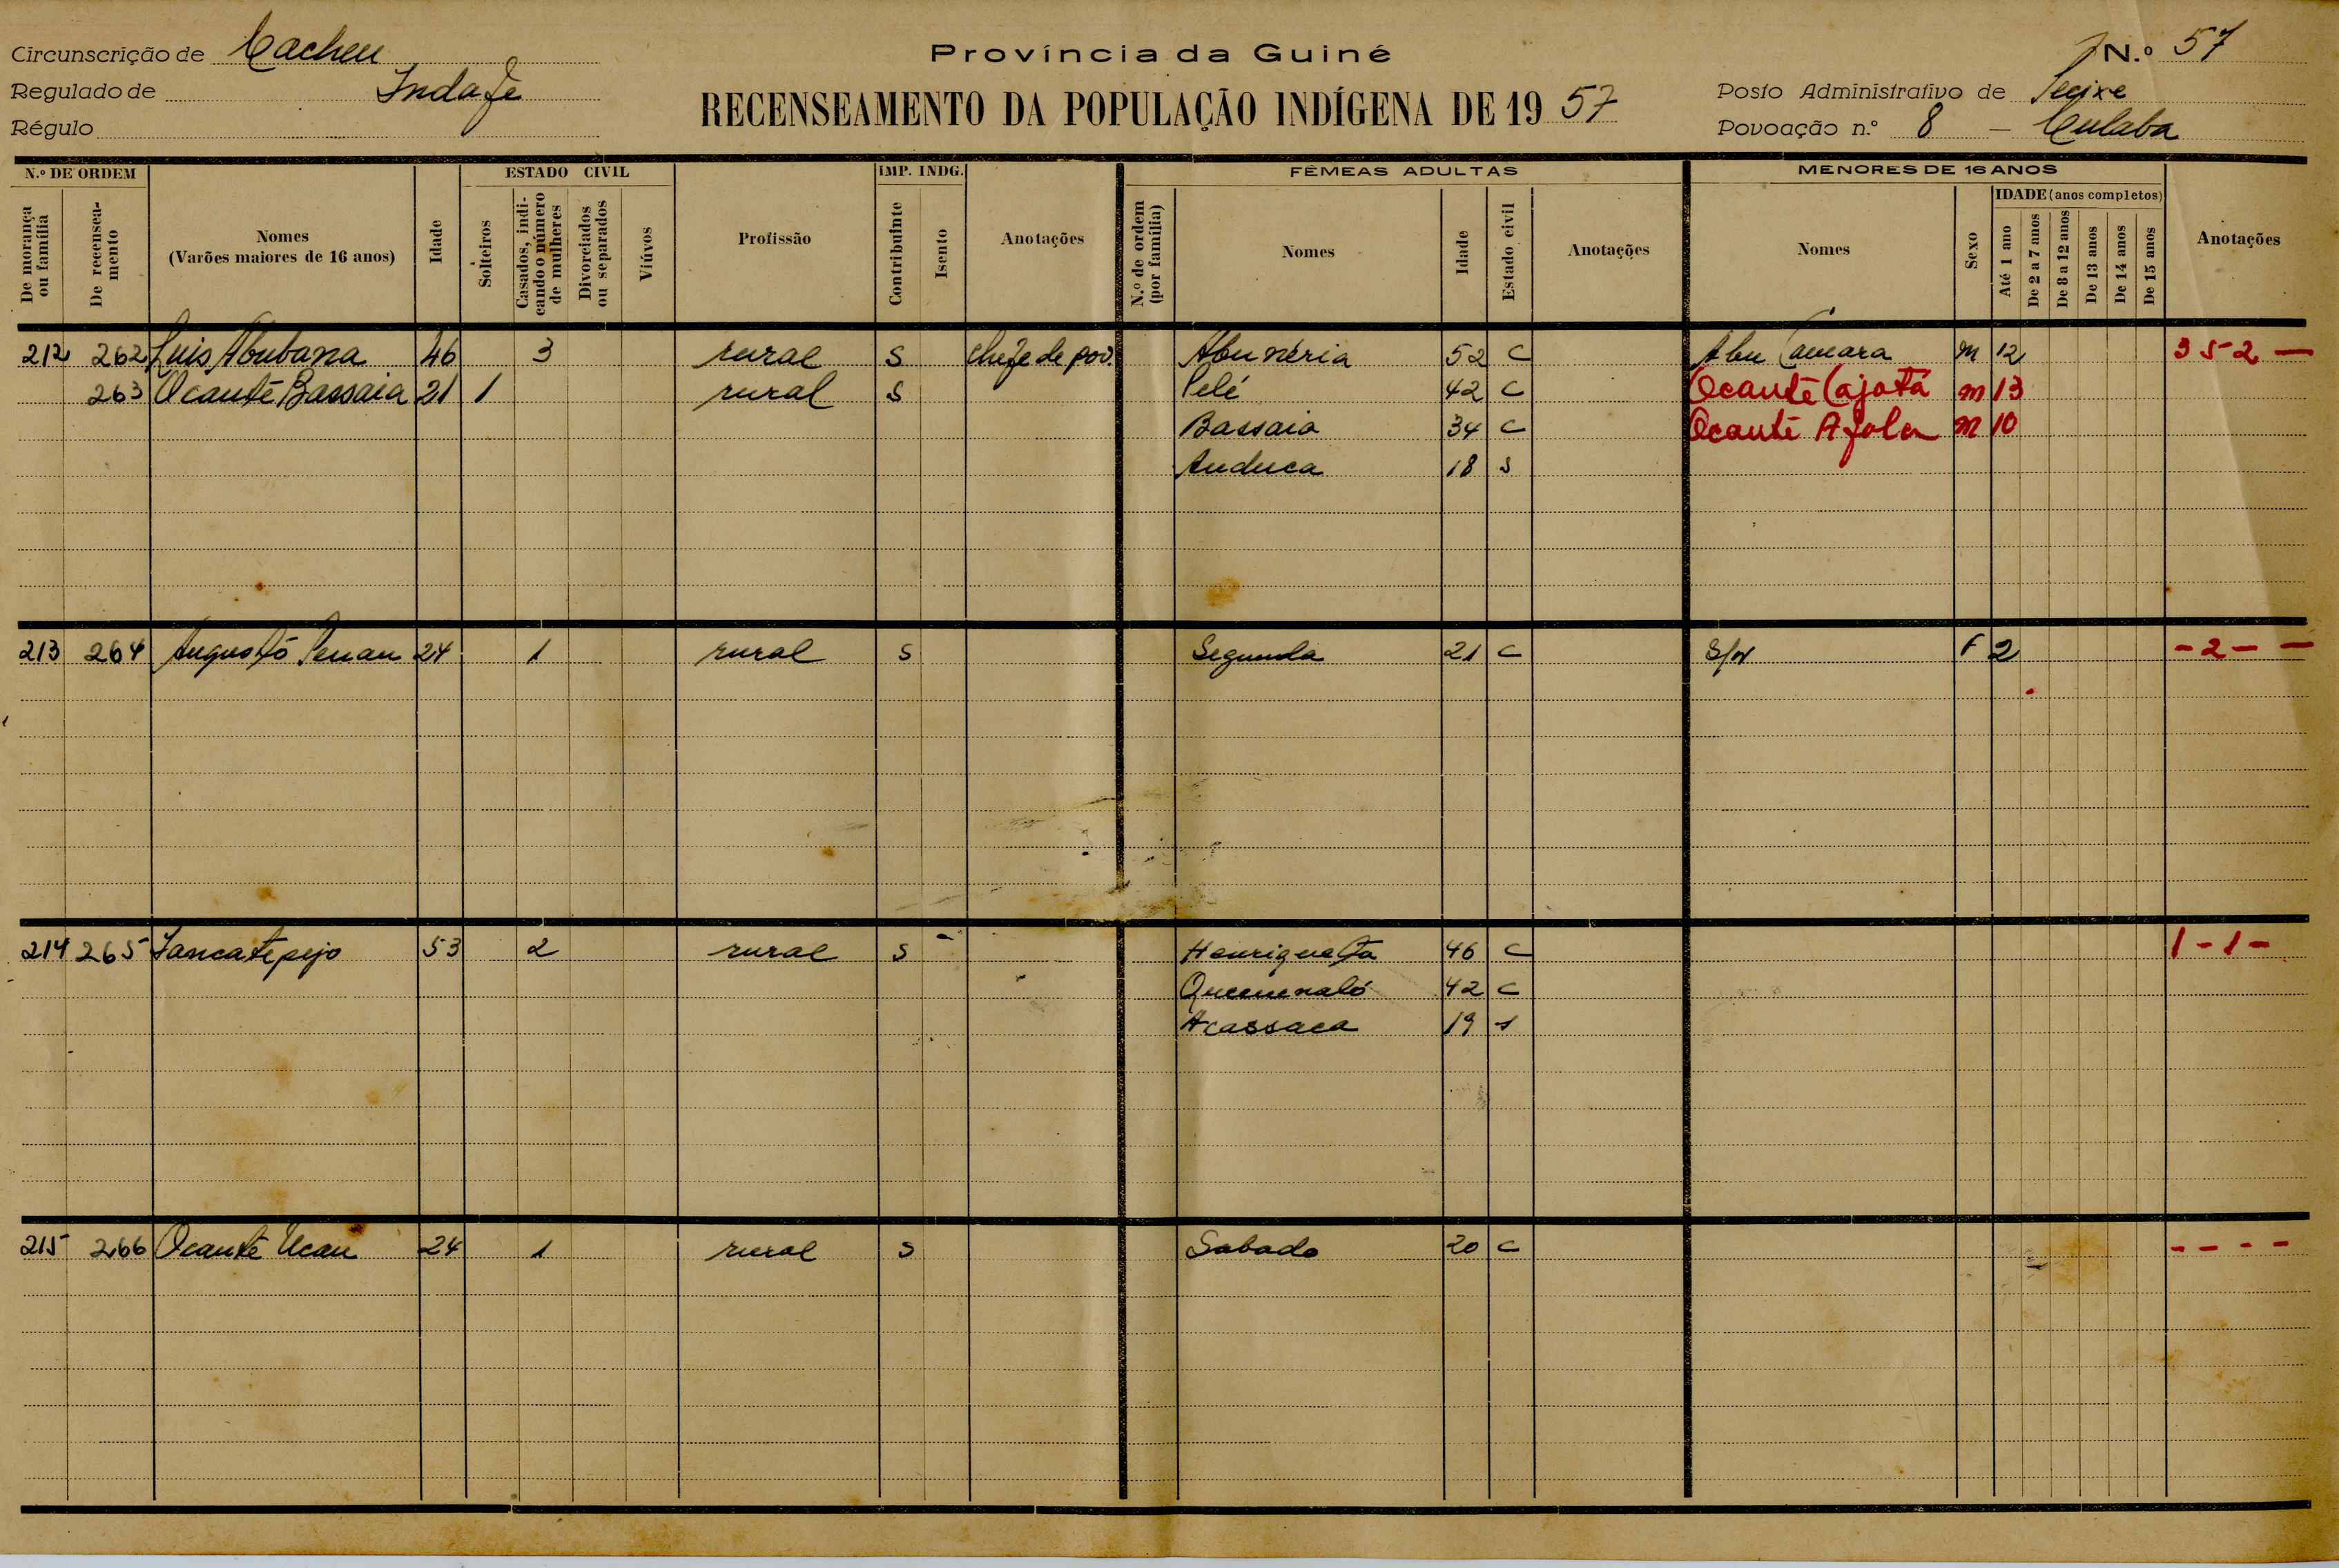 Circunscrição de Cacheu
Província da Guiné
N.º 57
Regulado de Indafe
Posto Administrativo de
Régulo
RECENSEAMENTO DA POPULAÇÃO INDÍGENA DE 19 57
Povoação n.º 8 — Culaba
N.º DE ORDEM
ESTADO CIVIL
IMP. INDG.
FÊMEAS ADULTAS
MENORES DE 16 ANOS
De morança ou família
De recenseamento
Nomes (Varões maiores de 16 anos)
Idade
Solteiros
Casados, indicando o número de mulheres
Divorciados ou separados
Viúvos
Profissão
Contribuinte
Isento
Anotações
N.º de ordem (por família)
Nomes
Idade
Estado civil
Anotações
Nomes
Sexo
IDADE (anos completos)
Até 1 ano
De 2 a 7 anos
De 8 a 12 anos
De 13 anos
De 14 anos
De 15 anos
Anotações
212 262 Luis Abubana 46 3 rural S chefe de pov. Abunéria 52 C Abu Camara m 12 3 5 2 —
263 Ocanté Bassaia 21 1 rural S Pelé 42 C Ocanté Cajatá m 13
Bassaia 34 C Ocanté Afola m 10
Anduca 18 s
213 264 Augusto 24 1 rural S Segunda 21 C S/n F 2 - 2 - -
214 265 53 2 rural S Henriqueta 46 C 1 - 1 -
42 C
Acassaca 19 s
215 266 Ocanté Ucau 24 1 rural S Sabado 20 C - - - -